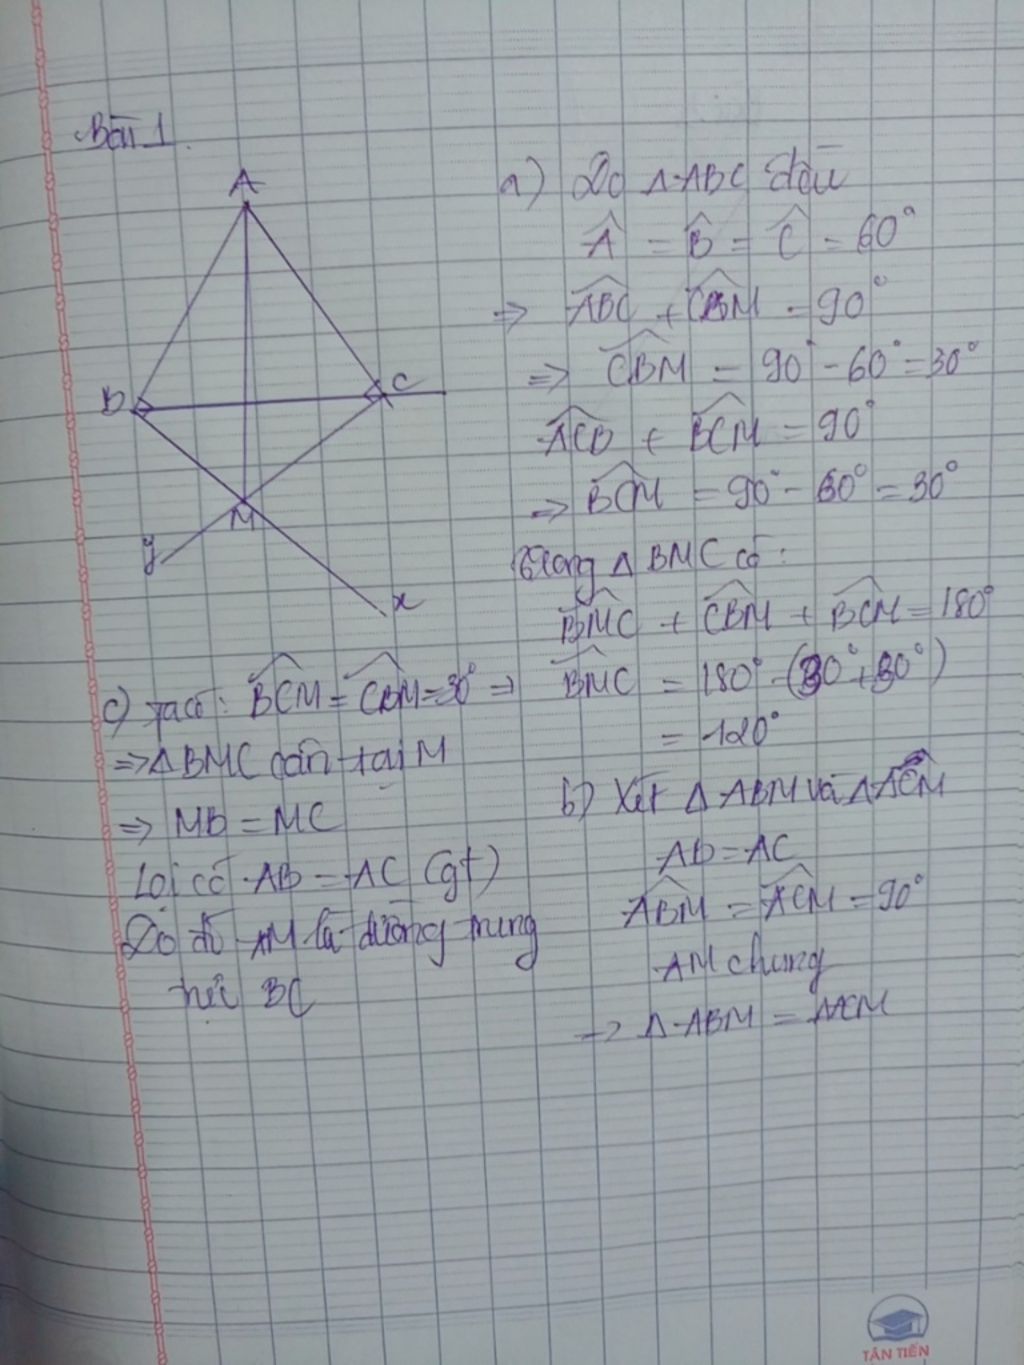 Bài 1.
A
B
C
M
y
x
a) Do ΔABC đều
Â = B̂ = Ĉ = 60°
=> ABC + CBM = 90°
=> CBM = 90° - 60° = 30°
ACB + BCM = 90°
=> BCM = 90° - 60° = 30°
Trong Δ BMC có:
BMC + CBM + BCM = 180°
=> BMC = 180° - (30° + 30°)
= 120°
b) Xét Δ ABM và Δ ACM
AB = AC
ABM = ACM = 90°
AM chung
=> Δ ABM = ACM
c) Ta có: BCM = CBM = 30°
=> Δ BMC cân tại M
=> MB = MC
Lại có AB = AC (gt)
Do đó AM là đường trung
trực BC
TÂN TIẾN